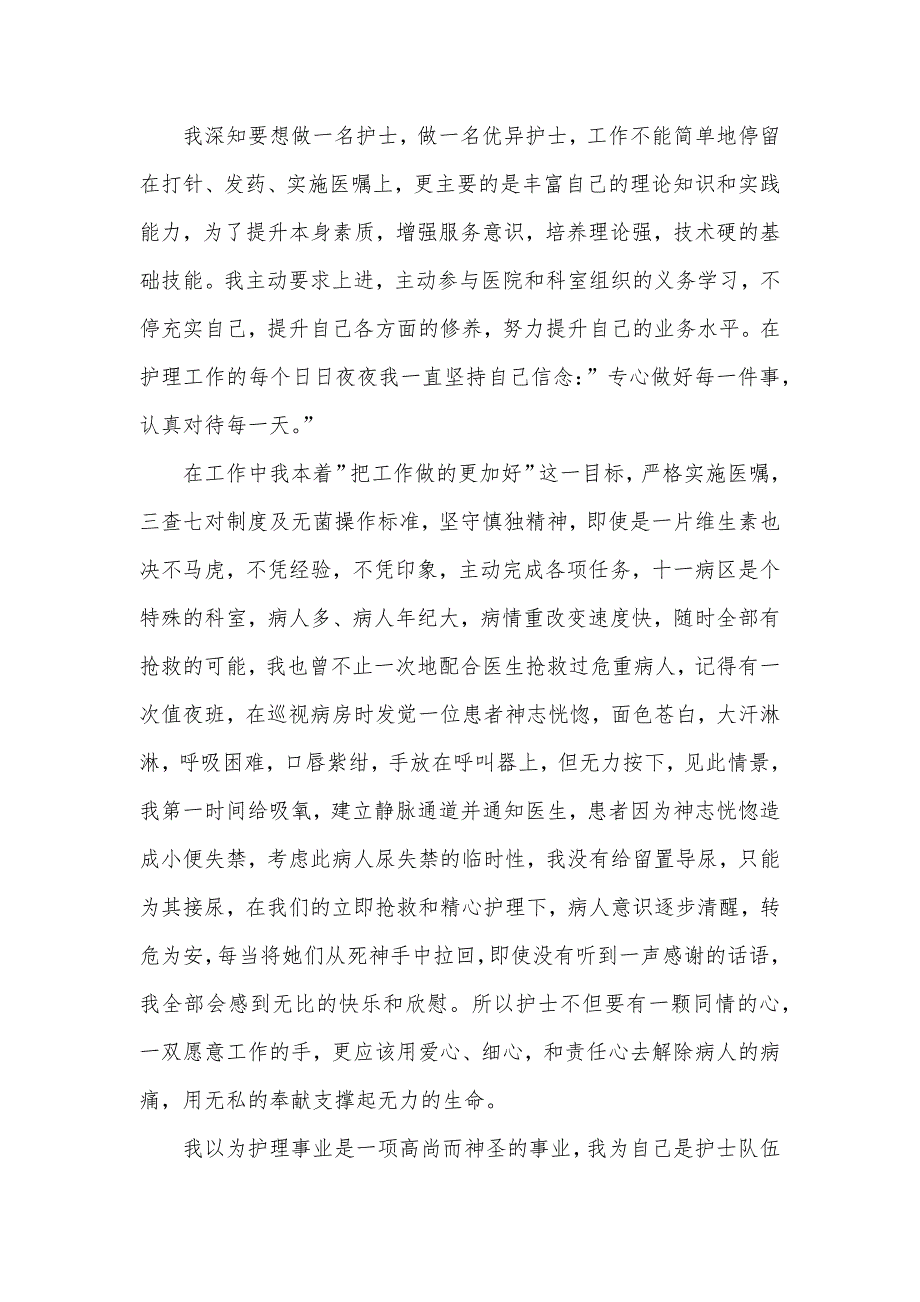 我深知要想做一名护士，做一名优异护士，工作不能简单地停留
在打针、发药、实施医嘱上，更主要的是丰富自己的理论知识和实践
能力，为了提升本身素质，增强服务意识，培养理论强，技术硬的基
础技能。我主动要求上进，主动参与医院和科室组织的义务学习，不
停充实自己，提升自己各方面的修养，努力提升自己的业务水平。在
护理工作的每个日日夜夜我一直坚持自己信念：”专心做好每一件事，
认真对待每一天。”
在工作中我本着”把工作做的更加好”这一目标，严格实施医嘱，
三查七对制度及无菌操作标准，坚守慎独精神，即使是一片维生素也
决不马虎，不凭经验，不凭印象，主动完成各项任务，十一病区是个
特殊的科室，病人多、病人年纪大，病情重改变速度快，随时全部有
抢救的可能，我也曾不止一次地配合医生抢救过危重病人，记得有一
次值夜班，在巡视病房时发觉一位患者神志恍惚，面色苍白，大汗淋
淋，呼吸困难，口唇紫绀，手放在呼叫器上，但无力按下，见此情景，
我第一时间给吸氧，建立静脉通道并通知医生，患者因为神志恍惚造
成小便失禁，考虑此病人尿失禁的临时性，我没有给留置导尿，只能
为其接尿，在我们的立即抢救和精心护理下，病人意识逐步清醒，转
危为安，每当将她们从死神手中拉回，即使没有听到一声感谢的话语，
我全部会感到无比的快乐和欣慰。所以护士不但要有一颗同情的心，
一双愿意工作的手，更应该用爱心、细心，和责任心去解除病人的病
痛，用无私的奉献支撑起无力的生命。
我以为护理事业是一项高尚而神圣的事业，我为自己是护士队伍